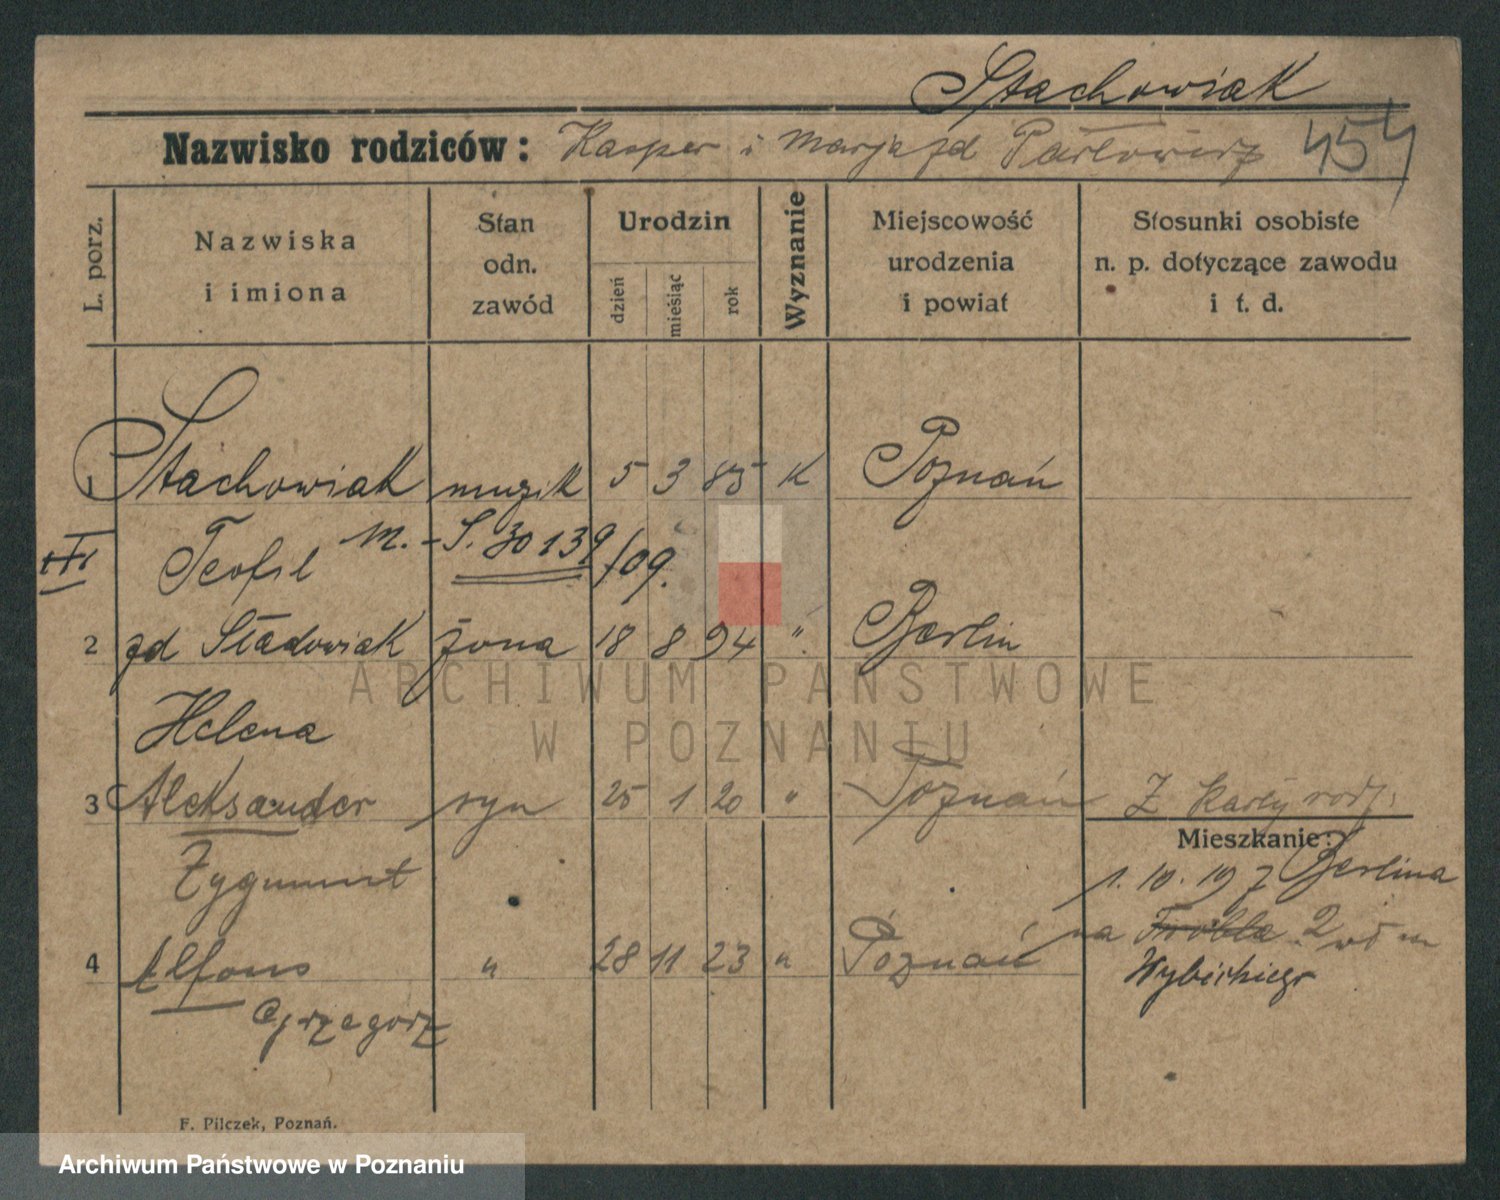 Stachowiak
Nazwisko rodziców: Kasper i Marja zd Pawłowicz 454
L. porz.
Nazwiska
i imiona
Stan
odn.
zawód
Urodzin
dzień
miesiąc
rok
Wyznanie
Miejscowość
urodzenia
i powiat
Stosunki osobiste
n. p. dotyczące zawodu
i t. d.
1 Stachowiak muzik 5 3 85 K Poznań
III Teofil M.-S. 30139/09.
2 zd Stadowiak żona 18 8 94 " Berlin
Helena
3 Aleksander syn 25 1 20 " Poznań Z karty rodz.
Mieszkanie:
Zygmunt 1. 10. 19 z Berlina
4 Alfons " 28 11 23 " Poznań na 2
Wybickiego
Grzegorz
F. Pilczek, Poznań.
ARCHIWUM PAŃSTWOWE
W POZNANIU
Archiwum Państwowe w Poznaniu